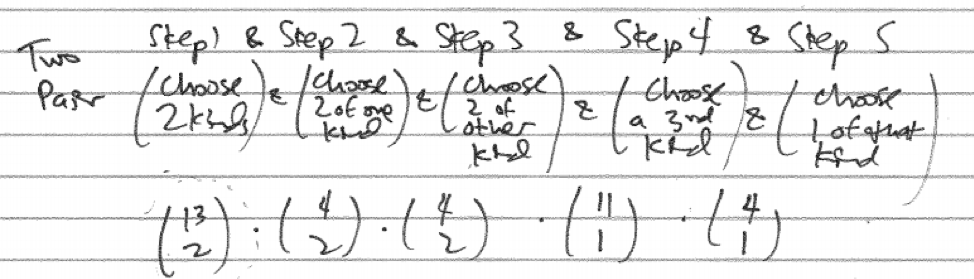 Step 1 & Step 2 & Step 3 & Step 4 & Step 5
Two Pair (Choose 2 kinds) & (Choose 2 of one kind) & (Choose 2 of other kind) & (Choose a 3rd kind) & (choose 1 of that kind)
(13 2) · (4 2) · (4 2) · (11 1) · (4 1)